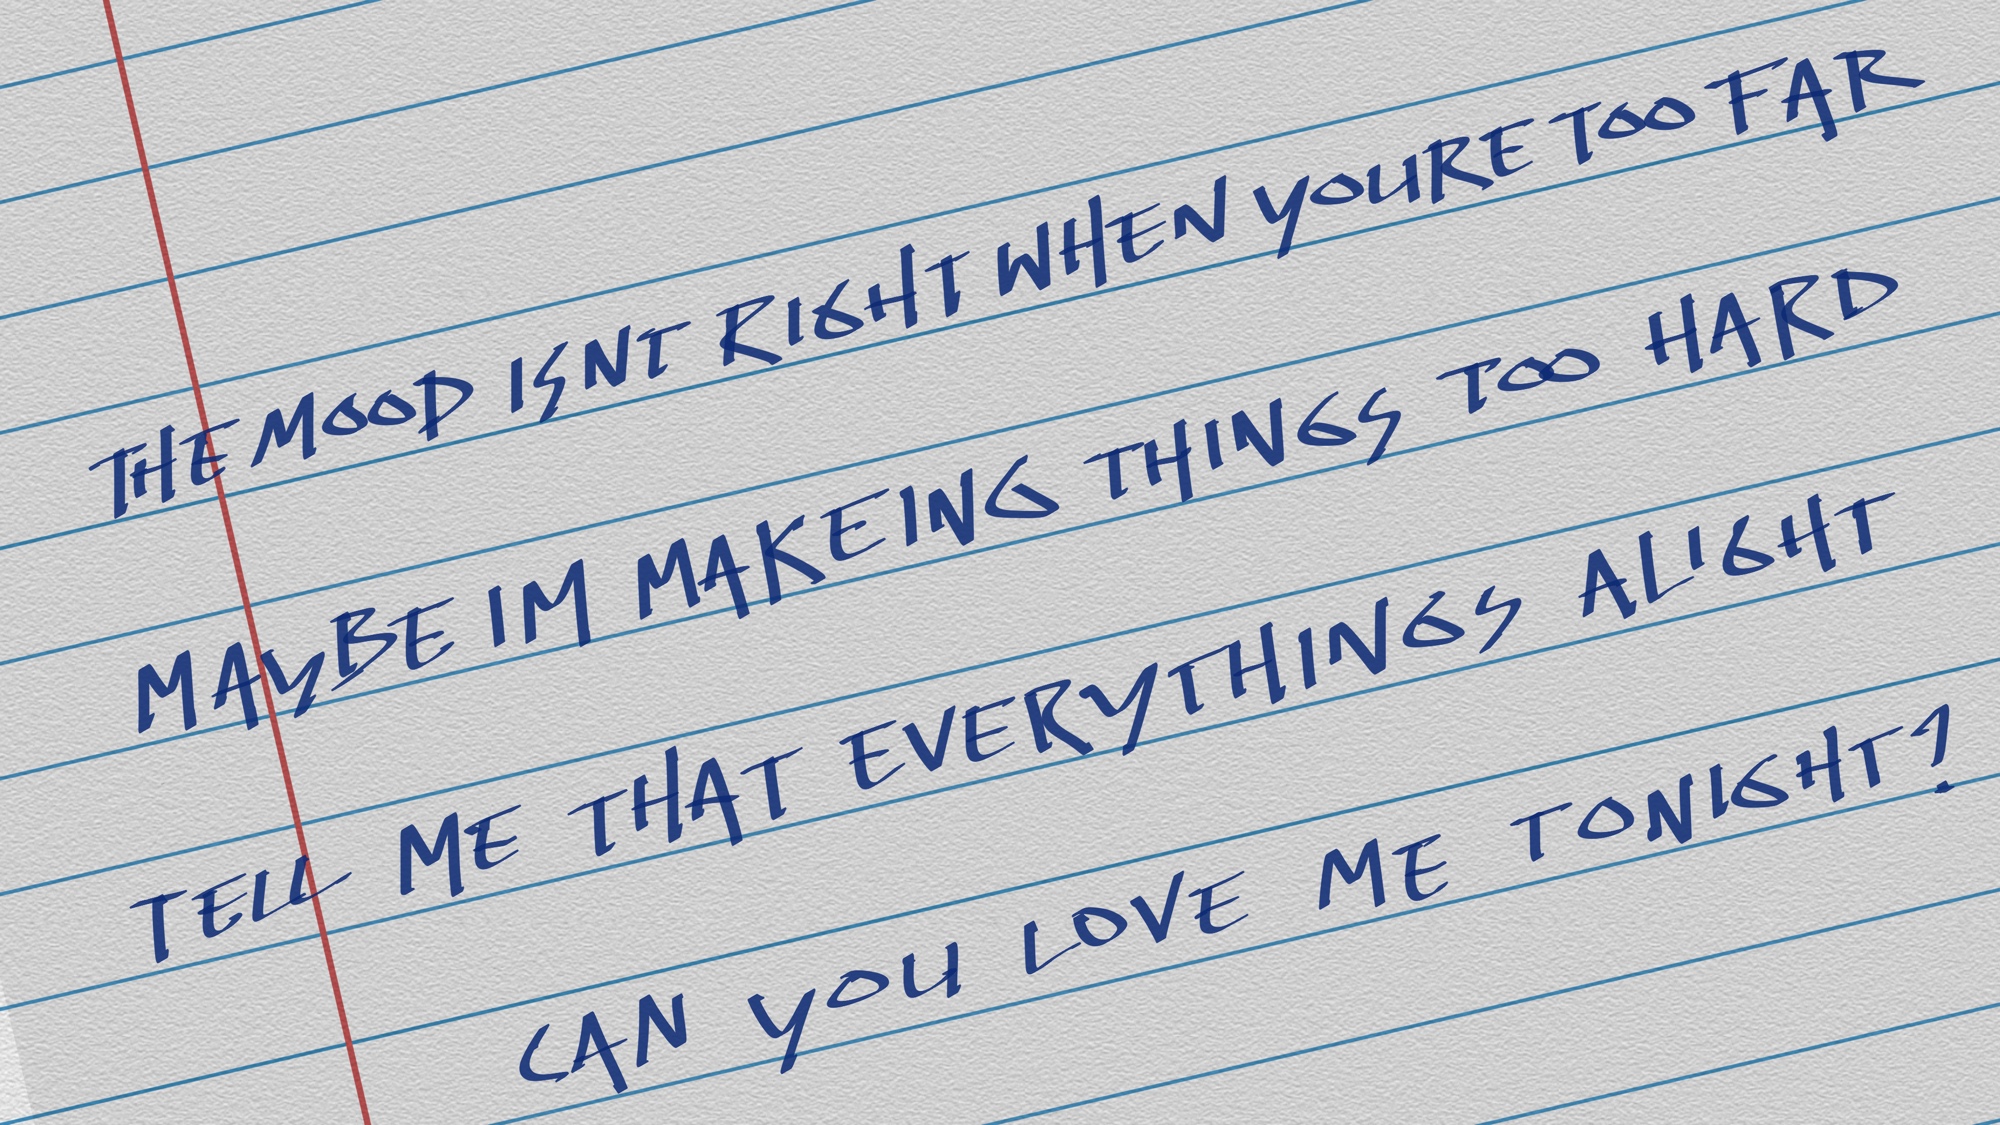 THE MOOD ISNT RIGHT WHEN YOURE TOO FAR
MAYBE IM MAKEING THINGS TOO HARD
TELL ME THAT EVERYTHINGS ALIGHT
CAN YOU LOVE ME TONIGHT?